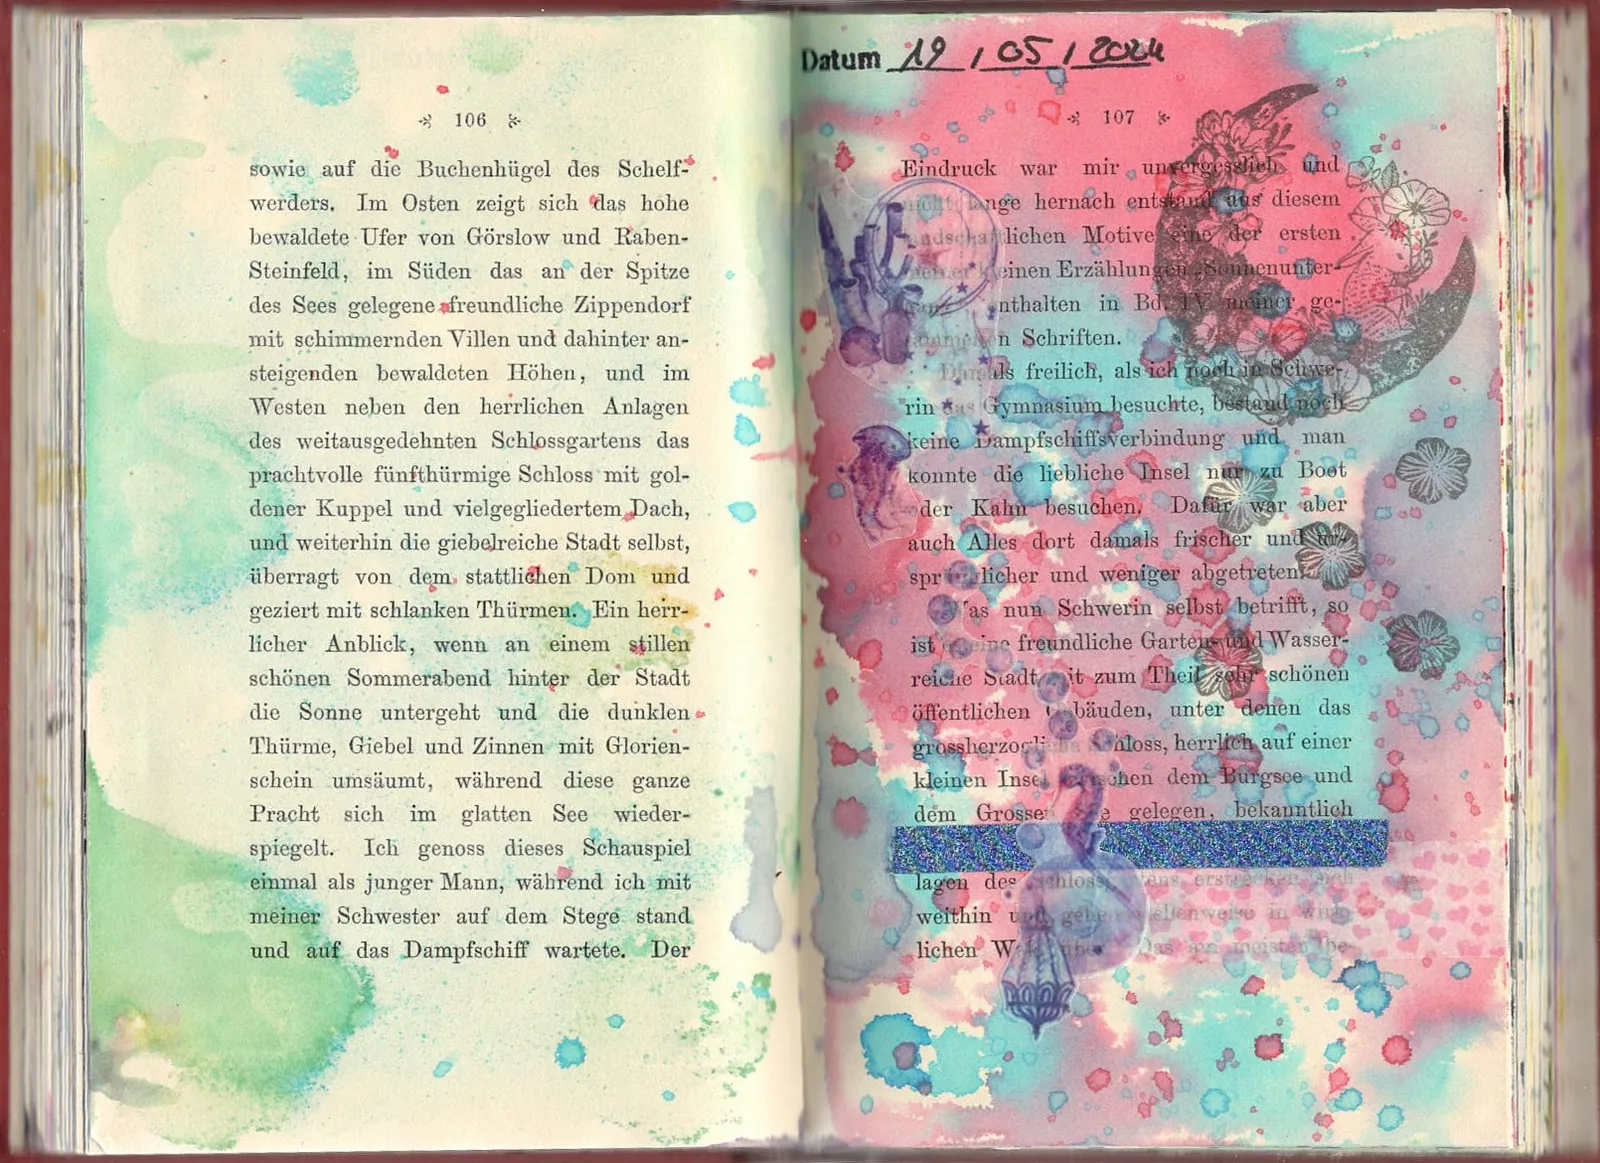 106
sowie auf die Buchenhügel des Schelf-
werders. Im Osten zeigt sich das hohe
bewaldete Ufer von Görslow und Raben-
Steinfeld, im Süden das an der Spitze
des Sees gelegene freundliche Zippendorf
mit schimmernden Villen und dahinter an-
steigenden bewaldeten Höhen, und im
Westen neben den herrlichen Anlagen
des weitausgedehnten Schlossgartens das
prachtvolle fünfthürmige Schloss mit gol-
dener Kuppel und vielgegliedertem Dach,
und weiterhin die giebelreiche Stadt selbst,
überragt von dem stattlichen Dom und
geziert mit schlanken Thürmen. Ein herr-
licher Anblick, wenn an einem stillen
schönen Sommerabend hinter der Stadt
die Sonne untergeht und die dunklen
Thürme, Giebel und Zinnen mit Glorien-
schein umsäumt, während diese ganze
Pracht sich im glatten See wieder-
spiegelt. Ich genoss dieses Schauspiel
einmal als junger Mann, während ich mit
meiner Schwester auf dem Stege stand
und auf das Dampfschiff wartete. Der
Datum 19 / 05 / 2024
107
Eindruck war mir unvergesslich und
nicht lange hernach entstand aus diesem
landschaftlichen Motive eine der ersten
meiner kleinen Erzählungen „Sonnenunter-
enthalten in Bd. IV meiner ge-
sammelten Schriften.
Damals freilich, als ich noch in Schwe-
rin das Gymnasium besuchte, bestand noch
keine Dampfschiffsverbindung und man
konnte die liebliche Insel nur zu Boot
oder Kahn besuchen. Dafür war aber
auch Alles dort damals frischer und ur-
sprünglicher und weniger abgetreten.
Was nun Schwerin selbst betrifft, so
ist es eine freundliche Garten- und Wasser-
reiche Stadt mit zum Theil sehr schönen
öffentlichen Gebäuden, unter denen das
grossherzogliche Schloss, herrlich auf einer
kleinen Insel zwischen dem Burgsee und
dem Grossen See gelegen, bekanntlich
lagen des Schlossgartens erstrecken sich
weithin und gehen stellenweise in wirk-
lichen Wald über. Das am meisten be-